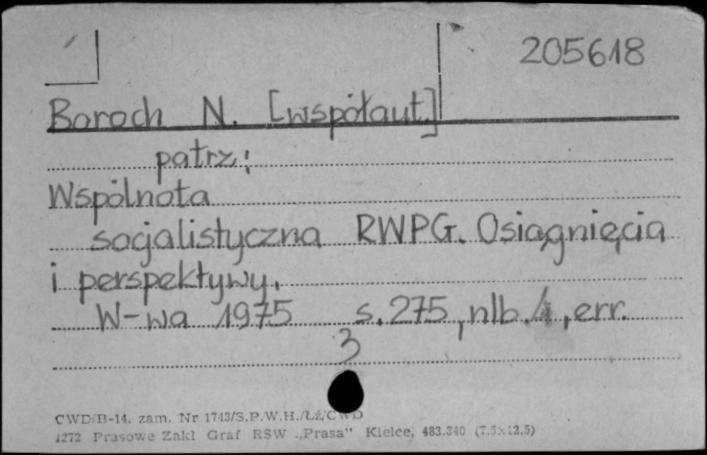 205618
Baroch N. [współaut.]
patrz:
Wspólnota
socjalistyczna RWPG. Osiągnięcia
i perspektywy.
W-wa 1975 s. 275, nlb. 1, err.
3
CWD/B-14. zam. Nr 1743/S.P.W.H./Łź/CWD
1272 Prasowe Zakł Graf RSW „Prasa" Kielce, 483.340 (7.5x12.5)